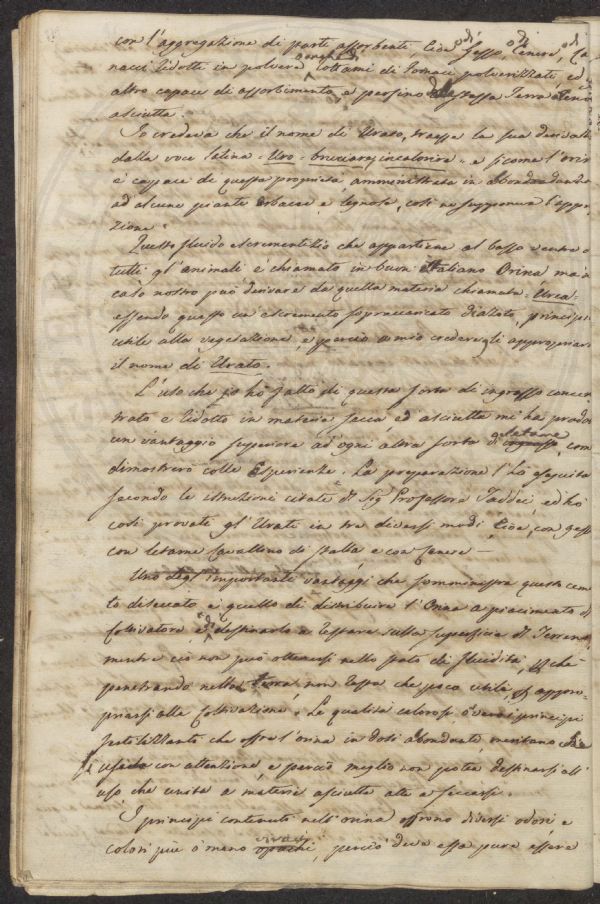 con l'aggregazione di parti assorbenti, cioè di Gesso, o di Cenere, o di Ca
nacci ridotti in polvere, anche di rottami di fornaci polverizzati, ed
altro capace di assorbimento, e persino la stessa Terra
asciutta.
Io credeva che il nome di Urato, traesse la sua deriva
dalla voce latina = Uro = bruciare, incalorire = e sicome l'orin
è cappace di questa proprietà, amministrata in abbondanza
ad alcune piante erbacee, e legnose, così ne supponeva l'appo
zione.
Questo fluido escrementizio che appartiene al basso ventre
tutti gl'animali è chiamato in buon Italiano Orina ma a
caso nostro può derivare da quella materia chiamata = Urea =
essendo questo un escremento sopraccaricato d'azoto, princip
utile alla vegetazione, e perciò a mio credere gli appropriar
il nome di Urato.
L'uso che io ho fatto di questa sorta di ingrasso concen
trato e ridotto in materia secca ed asciutta mi ha prodot
un vantaggio superiore ad ogni altra sorta di letame, com
dimostrerò colle Esperienze. La preparazione l'ho eseguita
secondo le istruzioni citate dal Sig Professore Taddei, ed hò
così provati gl'Urati in tre diversi modi, cioè, con gess
con letame Cavallino di stalla, e con Cenere —
Uno degl'importanti vantaggi che somministra questo
to dessecato è quello di distribuire l'Orina a piacimento
Coltivatore e di destinarlo a restare sulla superficie del Terreno,
mentre ciò non può ottenersi nello stato di fluidità, chè
penetrando nella terra non resta che poco utile, appro-
priarsi alla Coltivazione. Le qualità calorose, ò veri principj
fertilizzanti che offre l'orina in dosi abbondanti, meritano
usarsi con attenzione, e perciò meglio non potea destinarsi all'
uso che unita a materie asciutte atte a seccarsi.
I principj contenuti nell'orina offrono diversi odori, e
colori più ò meno vivaci, perciò deve essa pure essere